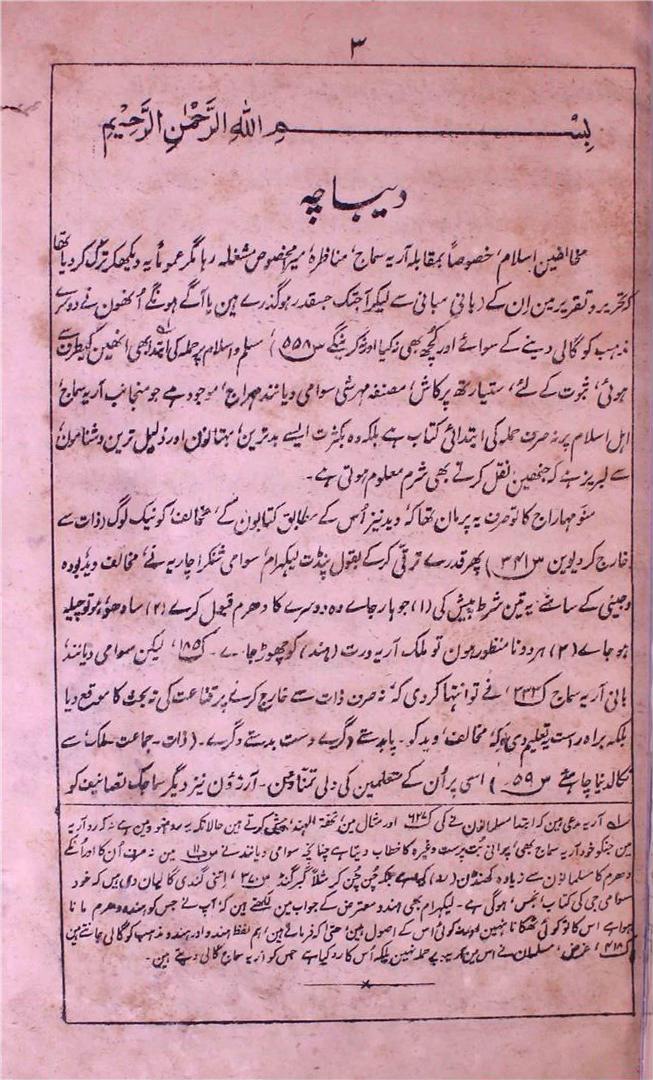 ۳
بِسْمِ اللهِ الرَّحْمٰنِ الرَّحِيْمِ
دیباچہ
مخالفین اسلام، خصوصاً بمقابلہ آریہ سماج، مناظرہ، میرا مخصوص مشغلہ رہا مگر عموماً یہ دیکھکر ترک کردیا تھا
کہ تحریر و تقریر مین اِن کے (بانی مبانی سے لیکر آجتک جسقدر ہو گذرے ہین یا آگے ہونگے اُنھون نے دوسرے
مذہب کو گالی دینے کے سوائے اور کچھ بھی نہ کیا اور نہ کرینگے س۵۵۸) مسلم و اسلام پر حملہ کی ابتدا بھی انھین کیطرف سے
ہوئی، ثبوت کے لئے، ستیارتھ پرکاش، مصنفہ مہرشی سوامی دیانند مہراج، موجود ہے جو منجانب آریہ سماج،
اہل اسلام پر نہ صرف حملہ کی ابتدائی کتاب ہے بلکہ وہ بکثرت ایسے بدترین، بہتانون اور ذلیل ترین دشنامون،
سے لبریز ہے کہ جنھین نقل کرتے بھی شرم معلوم ہوتی ہے۔
منو مہاراج کا تو صرف یہ پرمان تھا کہ، وید نیز اُس کے مطابق کتابون کے، مخالف، کو نیک لوگ (ذات سے
خارج کردیوین س۳۴۱) پھر قدرے ترقی کرکے بقول پنڈت لیکہرام، سوامی شنکر اچاریہ نے، مخالف وید بودھ
وجینی کے سامنے، یہ تین شرط پیش کی (۱) جو ہار جاے وہ دوسرے کا دھرم قبول کرے (۲) سادھو ہو تو چیلہ
ہو جاے (۳) ہر دو نا منظور ہون تو ملک آریہ ورت (ہند) کو چھوڑ جاے۔ ک۱۸۵، لیکن سوامی دیانند،
بانی آریہ سماج ک۲۳۳، نے تو انتہا کردی کہ، نہ صرف ذات سے خارج کرنے پر قناعت کی نہ بحث کا موقع دیا
بلکہ براہ راست یہ تعلیم دی کہ مخالف، وید کو۔ پابدستے دگرے دست بدستے دگرے۔ (ذات۔ جماعت۔ ملک، سے
نکالدینا چاہئے س۵۹) اسی پر اُن کے متعلمین کی دلی تمنا و مین۔ آرزؤن نیز دیگر سماجک تصانیف کو
آریہ مدعی ہین کہ ابتدا مسلمانون نے کی ک۶۲۷ اور مثال مین، تحفۃ الہند، پیش کرتے ہین حالانکہ یہ ہے نہ کہ رد آریہ
مین جنکو خود آریہ سماج بھی، پُرانی، بُت پرست وغیرہ کا خطاب دیتا ہے چنانچہ سوامی دیانند نے س۱۱ مین نہ صرف اُن کا اور اُنکے
دھرم کا مسلمانون سے زیادہ کھنڈن (رد) کیا ہے بلکہ چُن چُن کر مثلاً کبر گند س۳۷۰، اِتنی گندی گالیان دی ہین کہ خود
سوامی جی کی کتاب، نجس، ہوگئی ہے۔ لیکہرام بھی ہندو معترض کے جواب مین لکھتے ہین کہ، آپ نے جس کو ہندو دھرم مانا
ہوا ہے اس کا تو کوئی ٹھکانا نہین اور نہ کوئی اس کے اصول ہین، حتی کہ فرماتے ہین، ہم لفظ ہندو اور ہندو مذہب کو گالی جانتے ہین
ک۴۱۸، غرض، مسلمان نے اس مین آریہ، پر حملہ نہین بلکہ اُس کا رد کیا ہے جس کو آریہ سماج گالی دیتے ہین۔